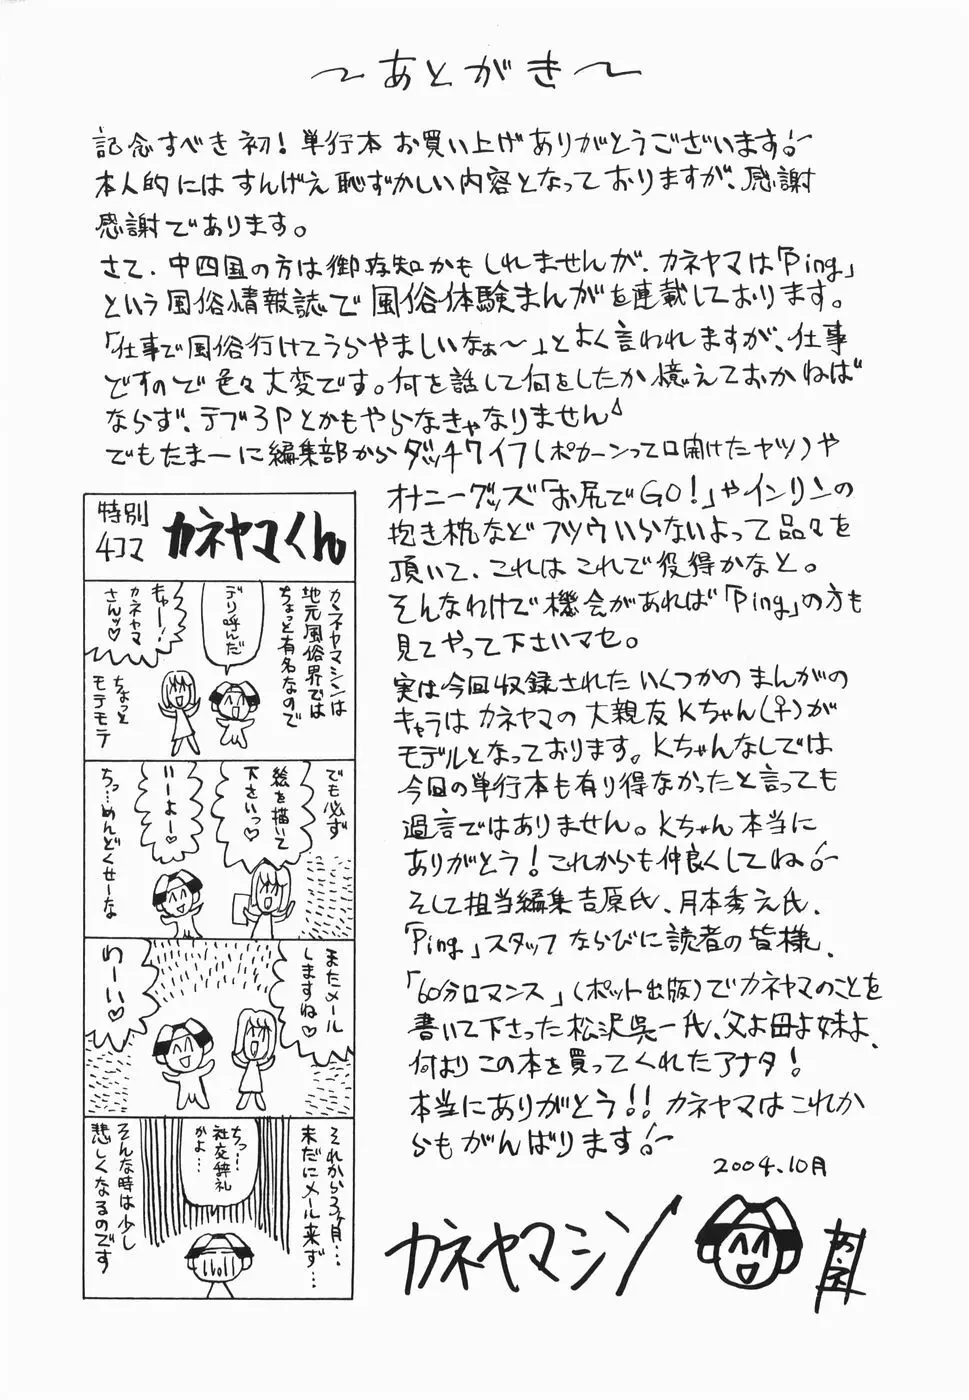 ～あとがき～
記念すべき初！単行本 お買い上げありがとうございます！
本人的にはすんげえ恥ずかしい内容となっておりますが、感謝
感謝であります。
さて、中四国の方は御存知かもしれませんが、カネヤマは「Ping」
という風俗情報誌で風俗体験まんがを連載しております。
「仕事で風俗行けてうらやましいなぁ～」とよく言われますが、仕事
ですので色々大変です。何を話して何をしたか憶えておかねば
ならず、デブ3Pとかもやらなきゃなりません
でもたまーに編集部からダッチワイフ(ポカーンって口開けたヤツ)や
オナニーグッズ「お尻でGO!」やインリンの
抱き枕などフツウいらないよって品々を
頂いて、これはこれで役得かなと。
そんなわけで機会があれば「Ping」の方も
見てやって下さいマセ。
実は今回収録されたいくつかのまんがの
キャラはカネヤマの大親友Kちゃん(♀)が
モデルとなっております。Kちゃんなしでは
今回の単行本も有り得なかったと言っても
過言ではありません。Kちゃん本当に
ありがとう！これからも仲良くしてね！
そして担当編集吉原氏、月本秀之氏、
「Ping」スタッフならびに読者の皆様、
「60分ロマンス」(ポット出版)でカネヤマのことを
書いて下さった松沢呉一氏、父よ母よ妹よ、
何よりこの本を買ってくれたアナタ！
本当にありがとう!!カネヤマはこれか
らもがんばります！
2004.10月
カネヤマシン
特別
4コマ
カネヤマくん
カネヤマシンは
地元風俗界では
ちょっと有名なので
デリ呼んだ
きゃー！
カネヤマ
さんッ♡
ちょっと
モテモテ
でも必ず
絵を描いて
下さいっ♡
いーよー♡
ちっ…めんどくせーな
またメール
しますね♡
わーい♡
それから3ヶ月…
未だにメール来ず…
ちっ…
社交辞礼
かよ…
そんな時は少し
悲しくなるのです